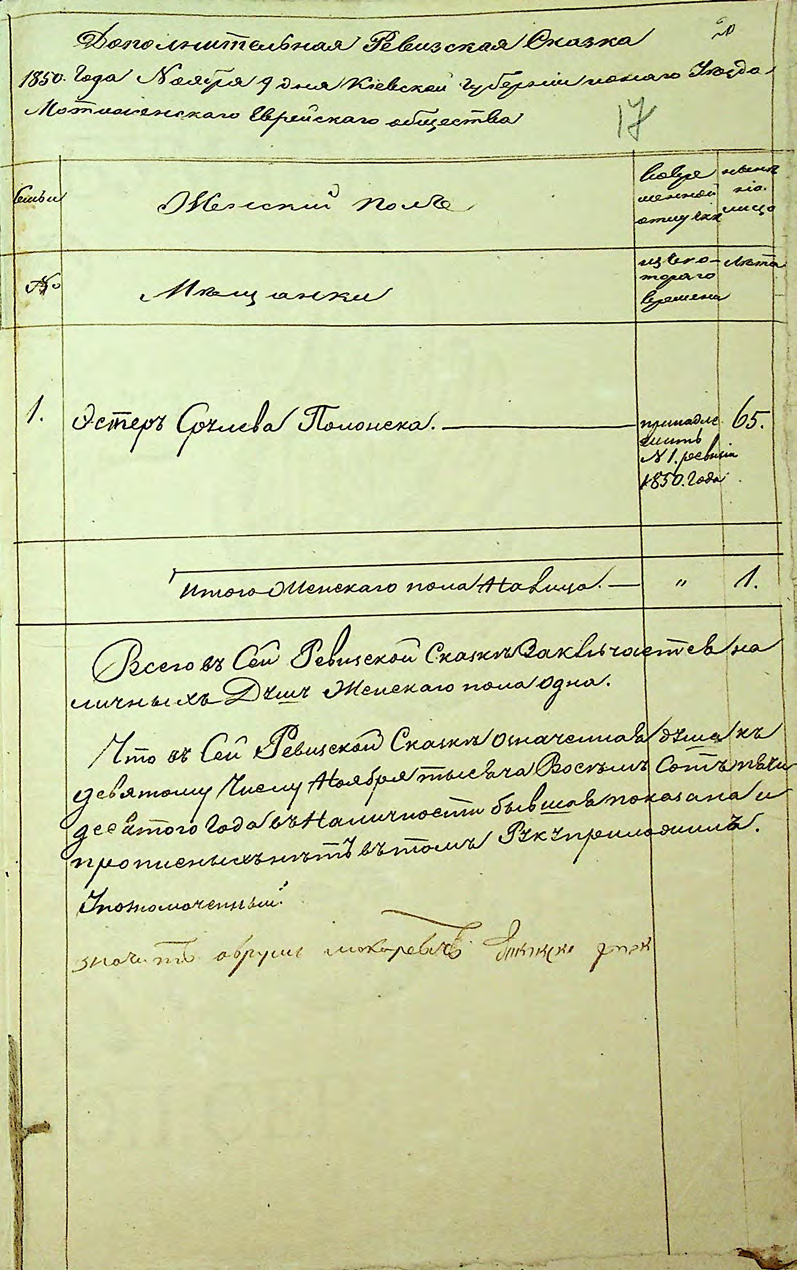 Дополнительная Ревизская Сказка
1850. Года Ноября 9 дня Кіевской Губерніи Уезда
Еврейскаго общества
17
Семьи
Женский полъ
вовре
менной
отлучке
№
Мещанки
изъ ко-
тораго
времени
лета
1.
Эстеръ Срулева Полонска.
принадле
жить
№ 1. ревизіи
1850. Года
65.
Итого Женскаго пола На лицо. — „ 1.
Всего въ Сей Ревизской Сказке Заключается на
личныхъ Душъ Женскаго пола одна.
Что въ Сей Ревизской Сказке означенная душа къ
девятому Числу Ноября тысяча Восемъ Сотъ пять
десятого Года въ Наличности бывшая показана и
прописныхъ нетъ въ томъ Руку приложилъ.
Уполномоченный